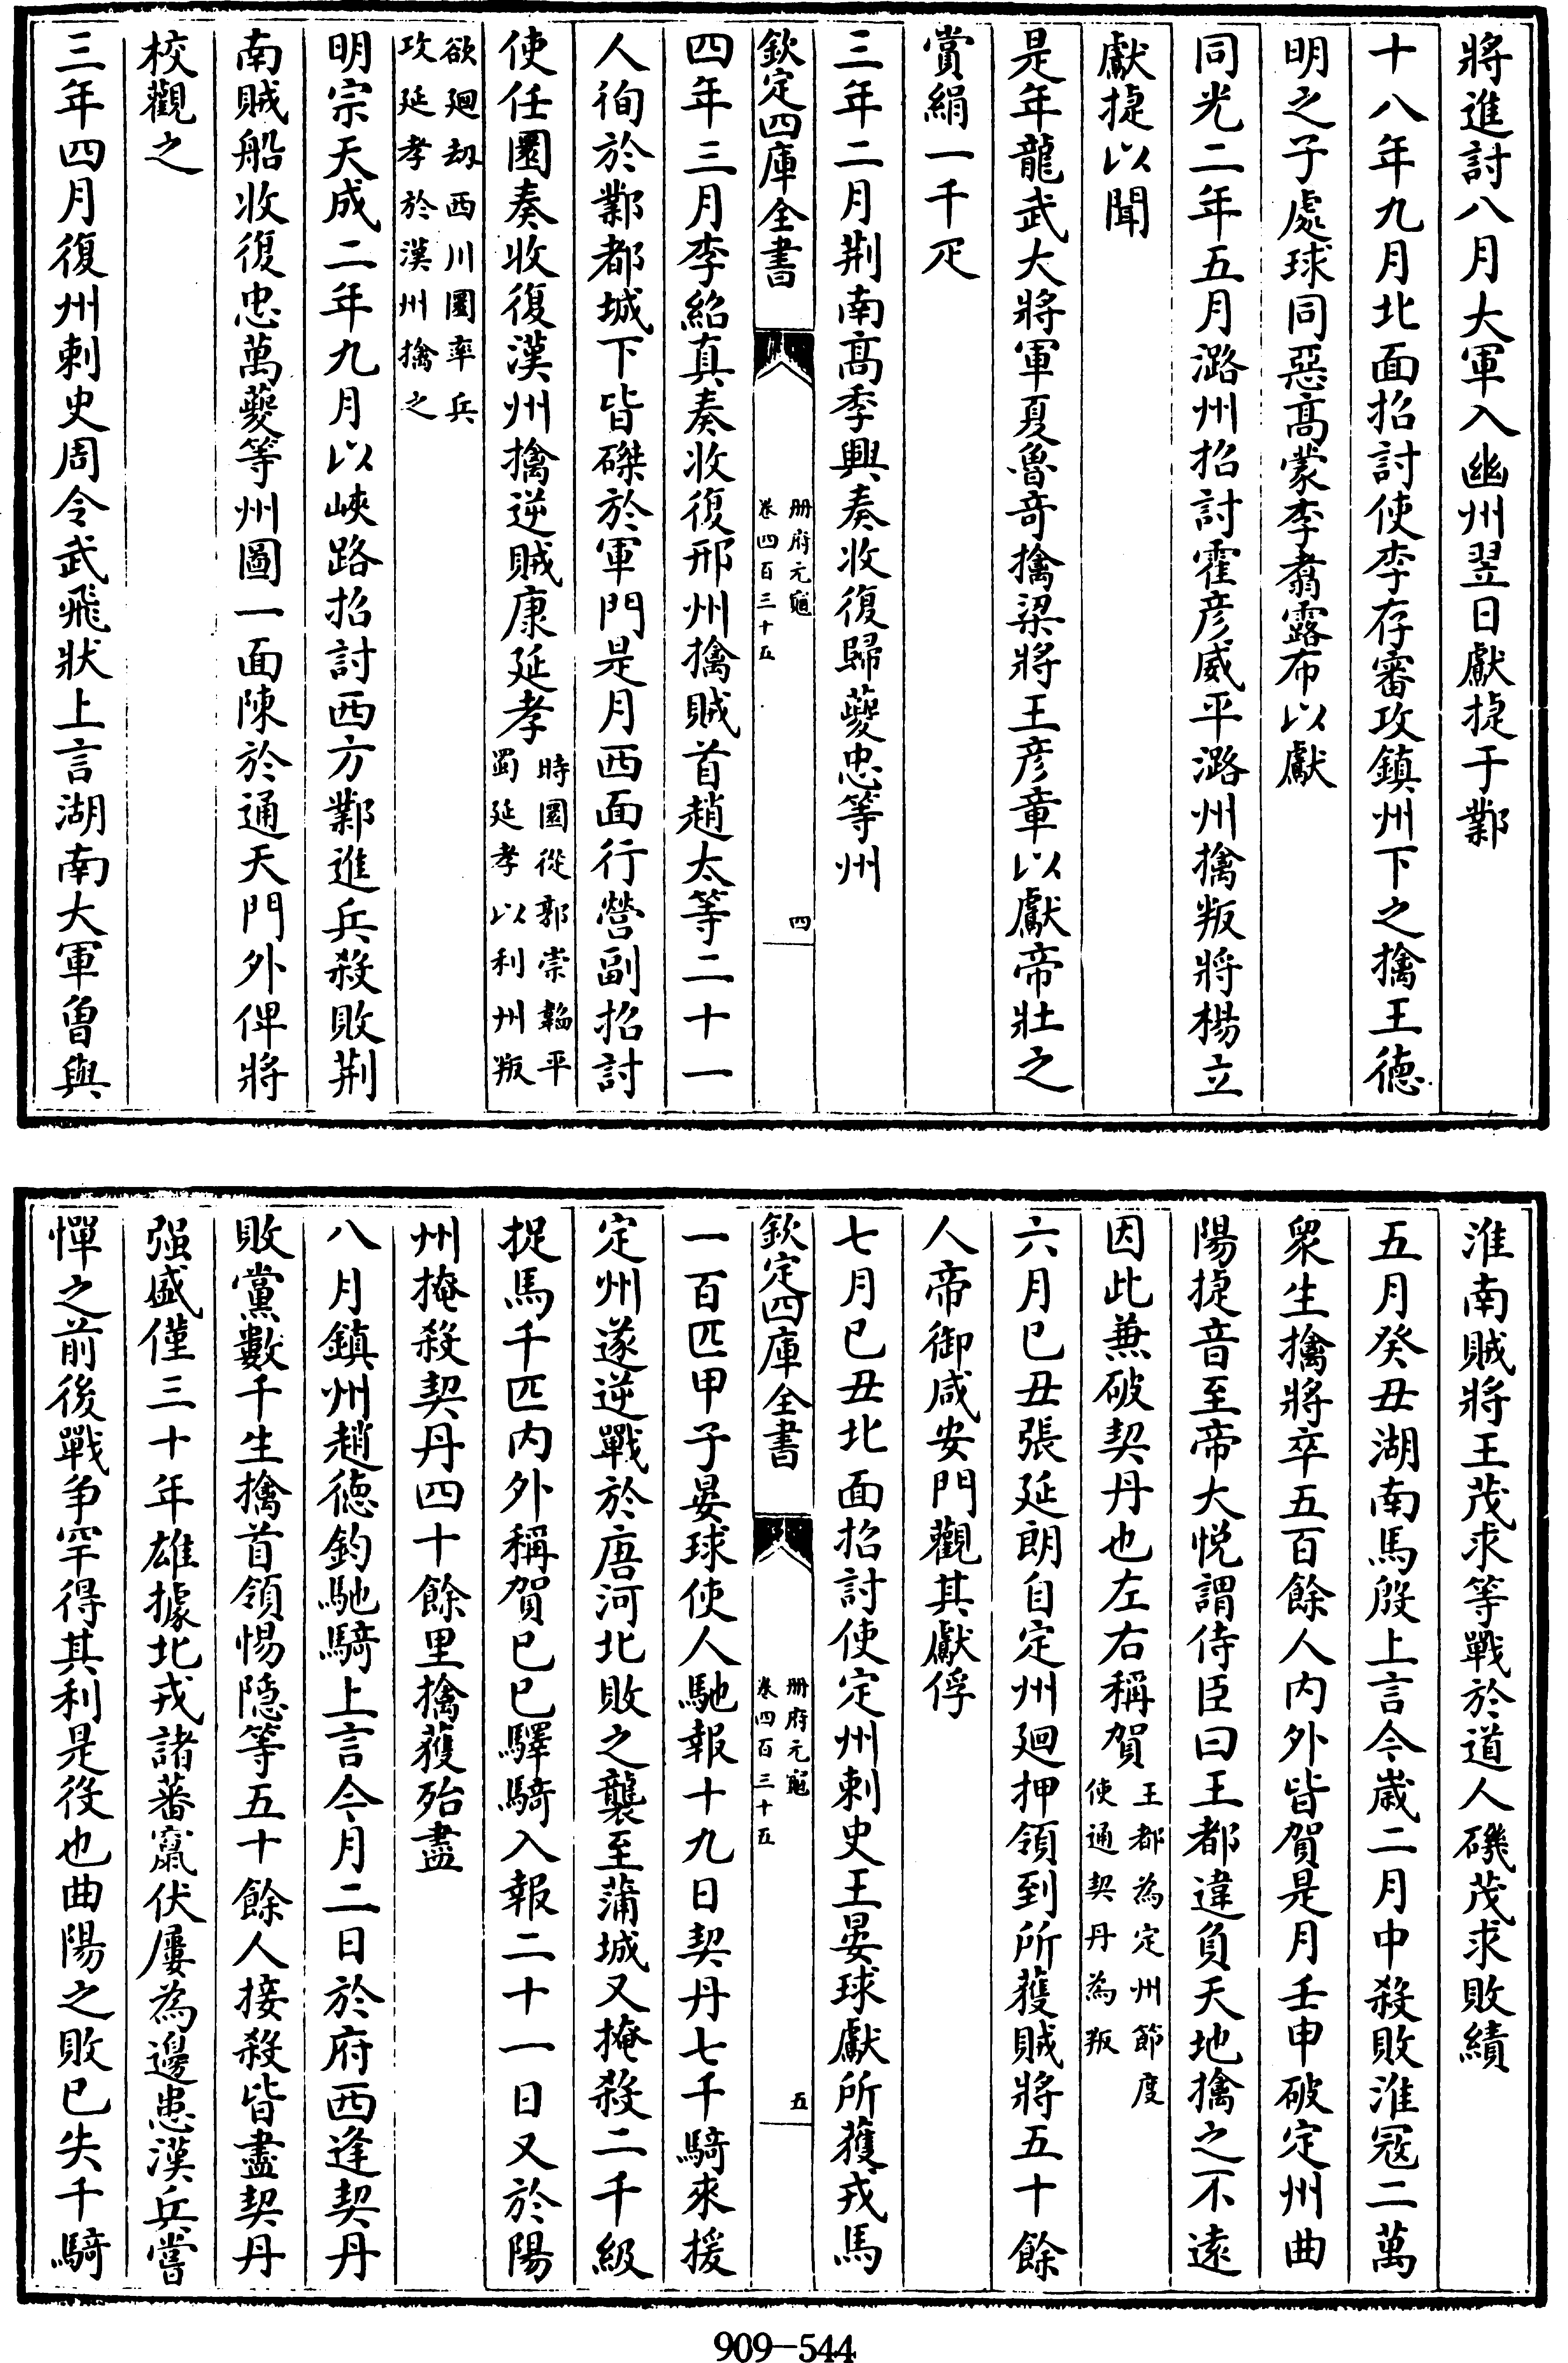 將進討八月大軍入幽州翌日獻捷于鄴
十八年九月北面招討使李存審攻鎮州下之擒王德
明之子處球同惡髙蒙李翥露布以獻
同光二年五月潞州招討霍彦威平潞州擒叛將楊立
獻捷以聞
是年龍武大將軍夏魯竒擒梁將王彦章以獻帝壯之
賞絹一千疋
三年二月荆南髙季興奏收復歸夔忠等州
欽定四庫全書
册府元龜
卷四百三十五
四
四年三月李紹真奏收復邢州擒賊首趙太等二十一
人徇於鄴都城下皆磔於軍門是月西面行營副招討
使任圜奏收復漢州擒逆賊康延孝
時圜從郭崇韜平
蜀延孝以利州叛
欲廻刼西川圜率兵
攻延孝於漢州擒之
明宗天成二年九月以峽路招討西方鄴進兵殺敗荆
南賊船收復忠萬夔等州圖一面陳於通天門外俾將
校觀之
三年四月復州刺史周令武飛狀上言湖南大軍曽與
淮南賊將王茂求等戰於道人磯茂求敗績
五月癸丑湖南馬殷上言今歳二月中殺敗淮冦二萬
衆生擒將卒五百餘人内外皆賀是月壬申破定州曲
陽捷音至帝大悦謂侍臣曰王都違負天地擒之不逺
因此兼破契丹也左右稱賀
王都為定州節度
使通契丹為叛
六月己丑張延朗自定州廻押領到所獲賊將五十餘
人帝御咸安門觀其獻俘
七月己丑北面招討使定州刺史王晏球獻所獲戎馬
欽定四庫全書
册府元龜
卷四百三十五
五
一百匹甲子晏球使人馳報十九日契丹七千騎來援
定州遂逆戰於唐河北敗之襲至蒲城又掩殺二千級
捉馬千匹内外稱賀己巳驛騎入報二十一日又於陽
州掩殺契丹四十餘里擒獲殆盡
八月鎮州趙徳鈞馳騎上言今月二日於府西逢契丹
敗黨數千生擒首領惕隠等五十餘人接殺皆盡契丹
强盛僅三十年雄據北戎諸蕃竄伏屢為邊患漢兵嘗
憚之前後戰争罕得其利是役也曲陽之敗已失千騎
909-544